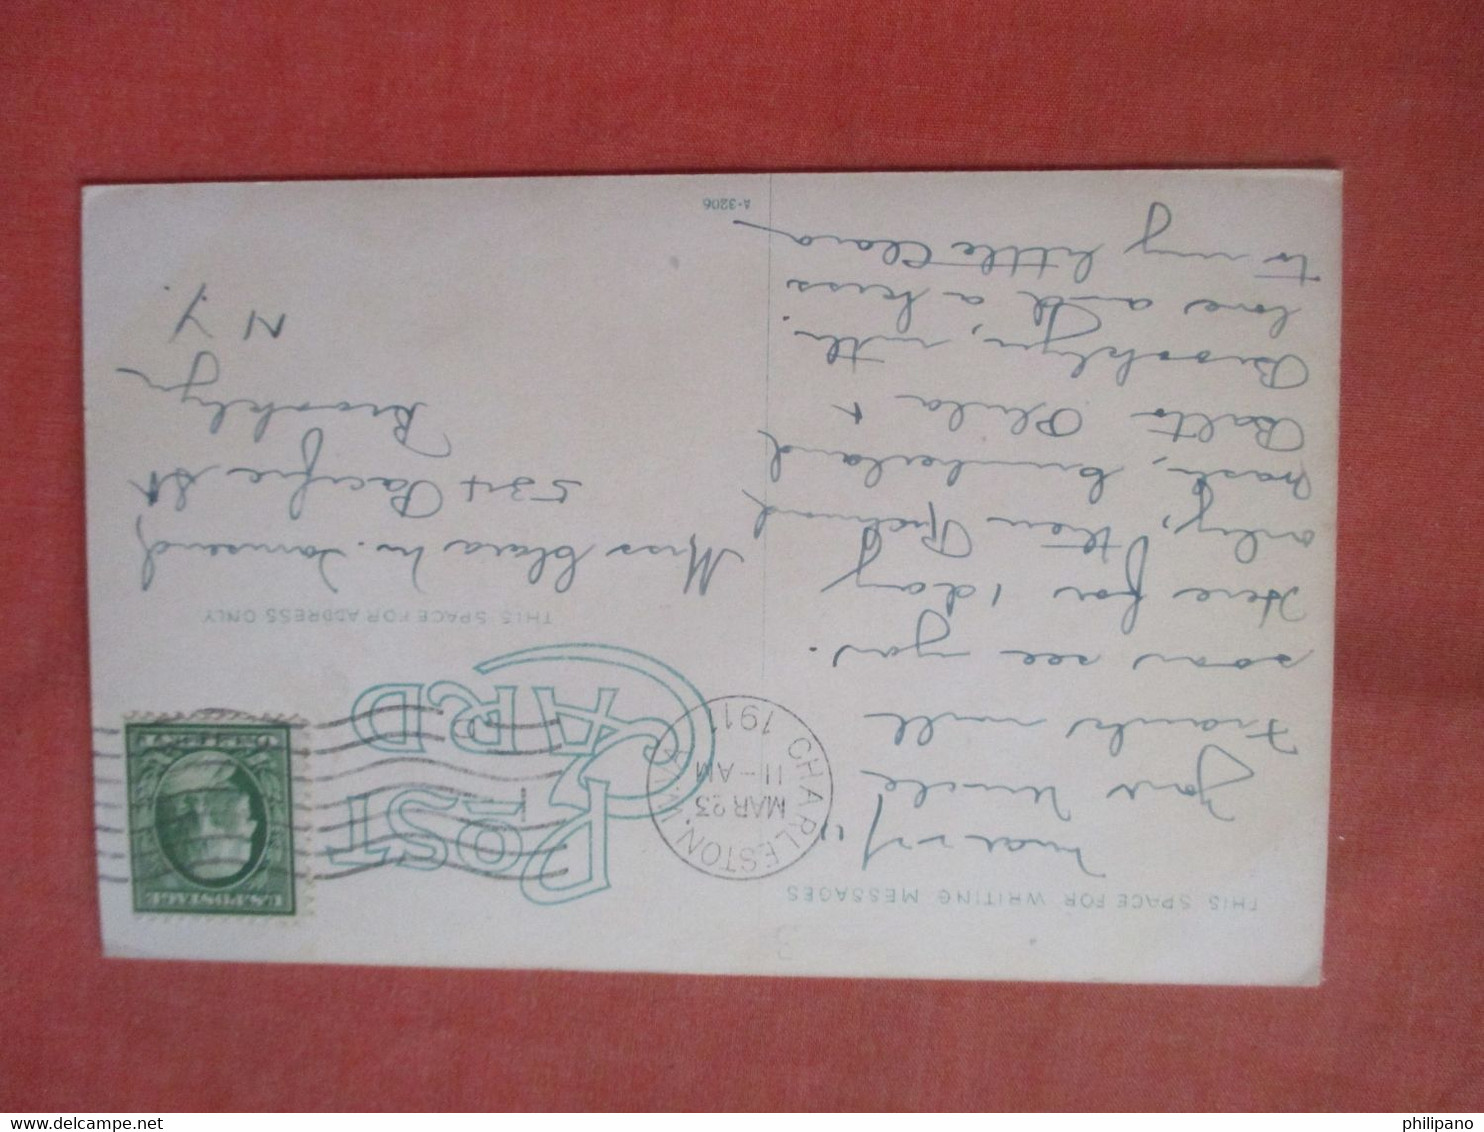 THIS SPACE FOR WRITING MESSAGES
Mar 23/11
Your Uncle
Frank will
soon see you.
Here for 1 day
only, then Richmond
Wash, Cumberland
Balto Phila +
Brooklyn, with
love and a kiss
to my little Clara
POST CARD
CHARLESTON, W.VA.
MAR 23
11-AM
1911
U.S. POSTAGE
THIS SPACE FOR ADDRESS ONLY
Miss Clara M. Townsend
534 Pacific St
Brooklyn
N.Y.
A-3206
delcampe.net
philipano